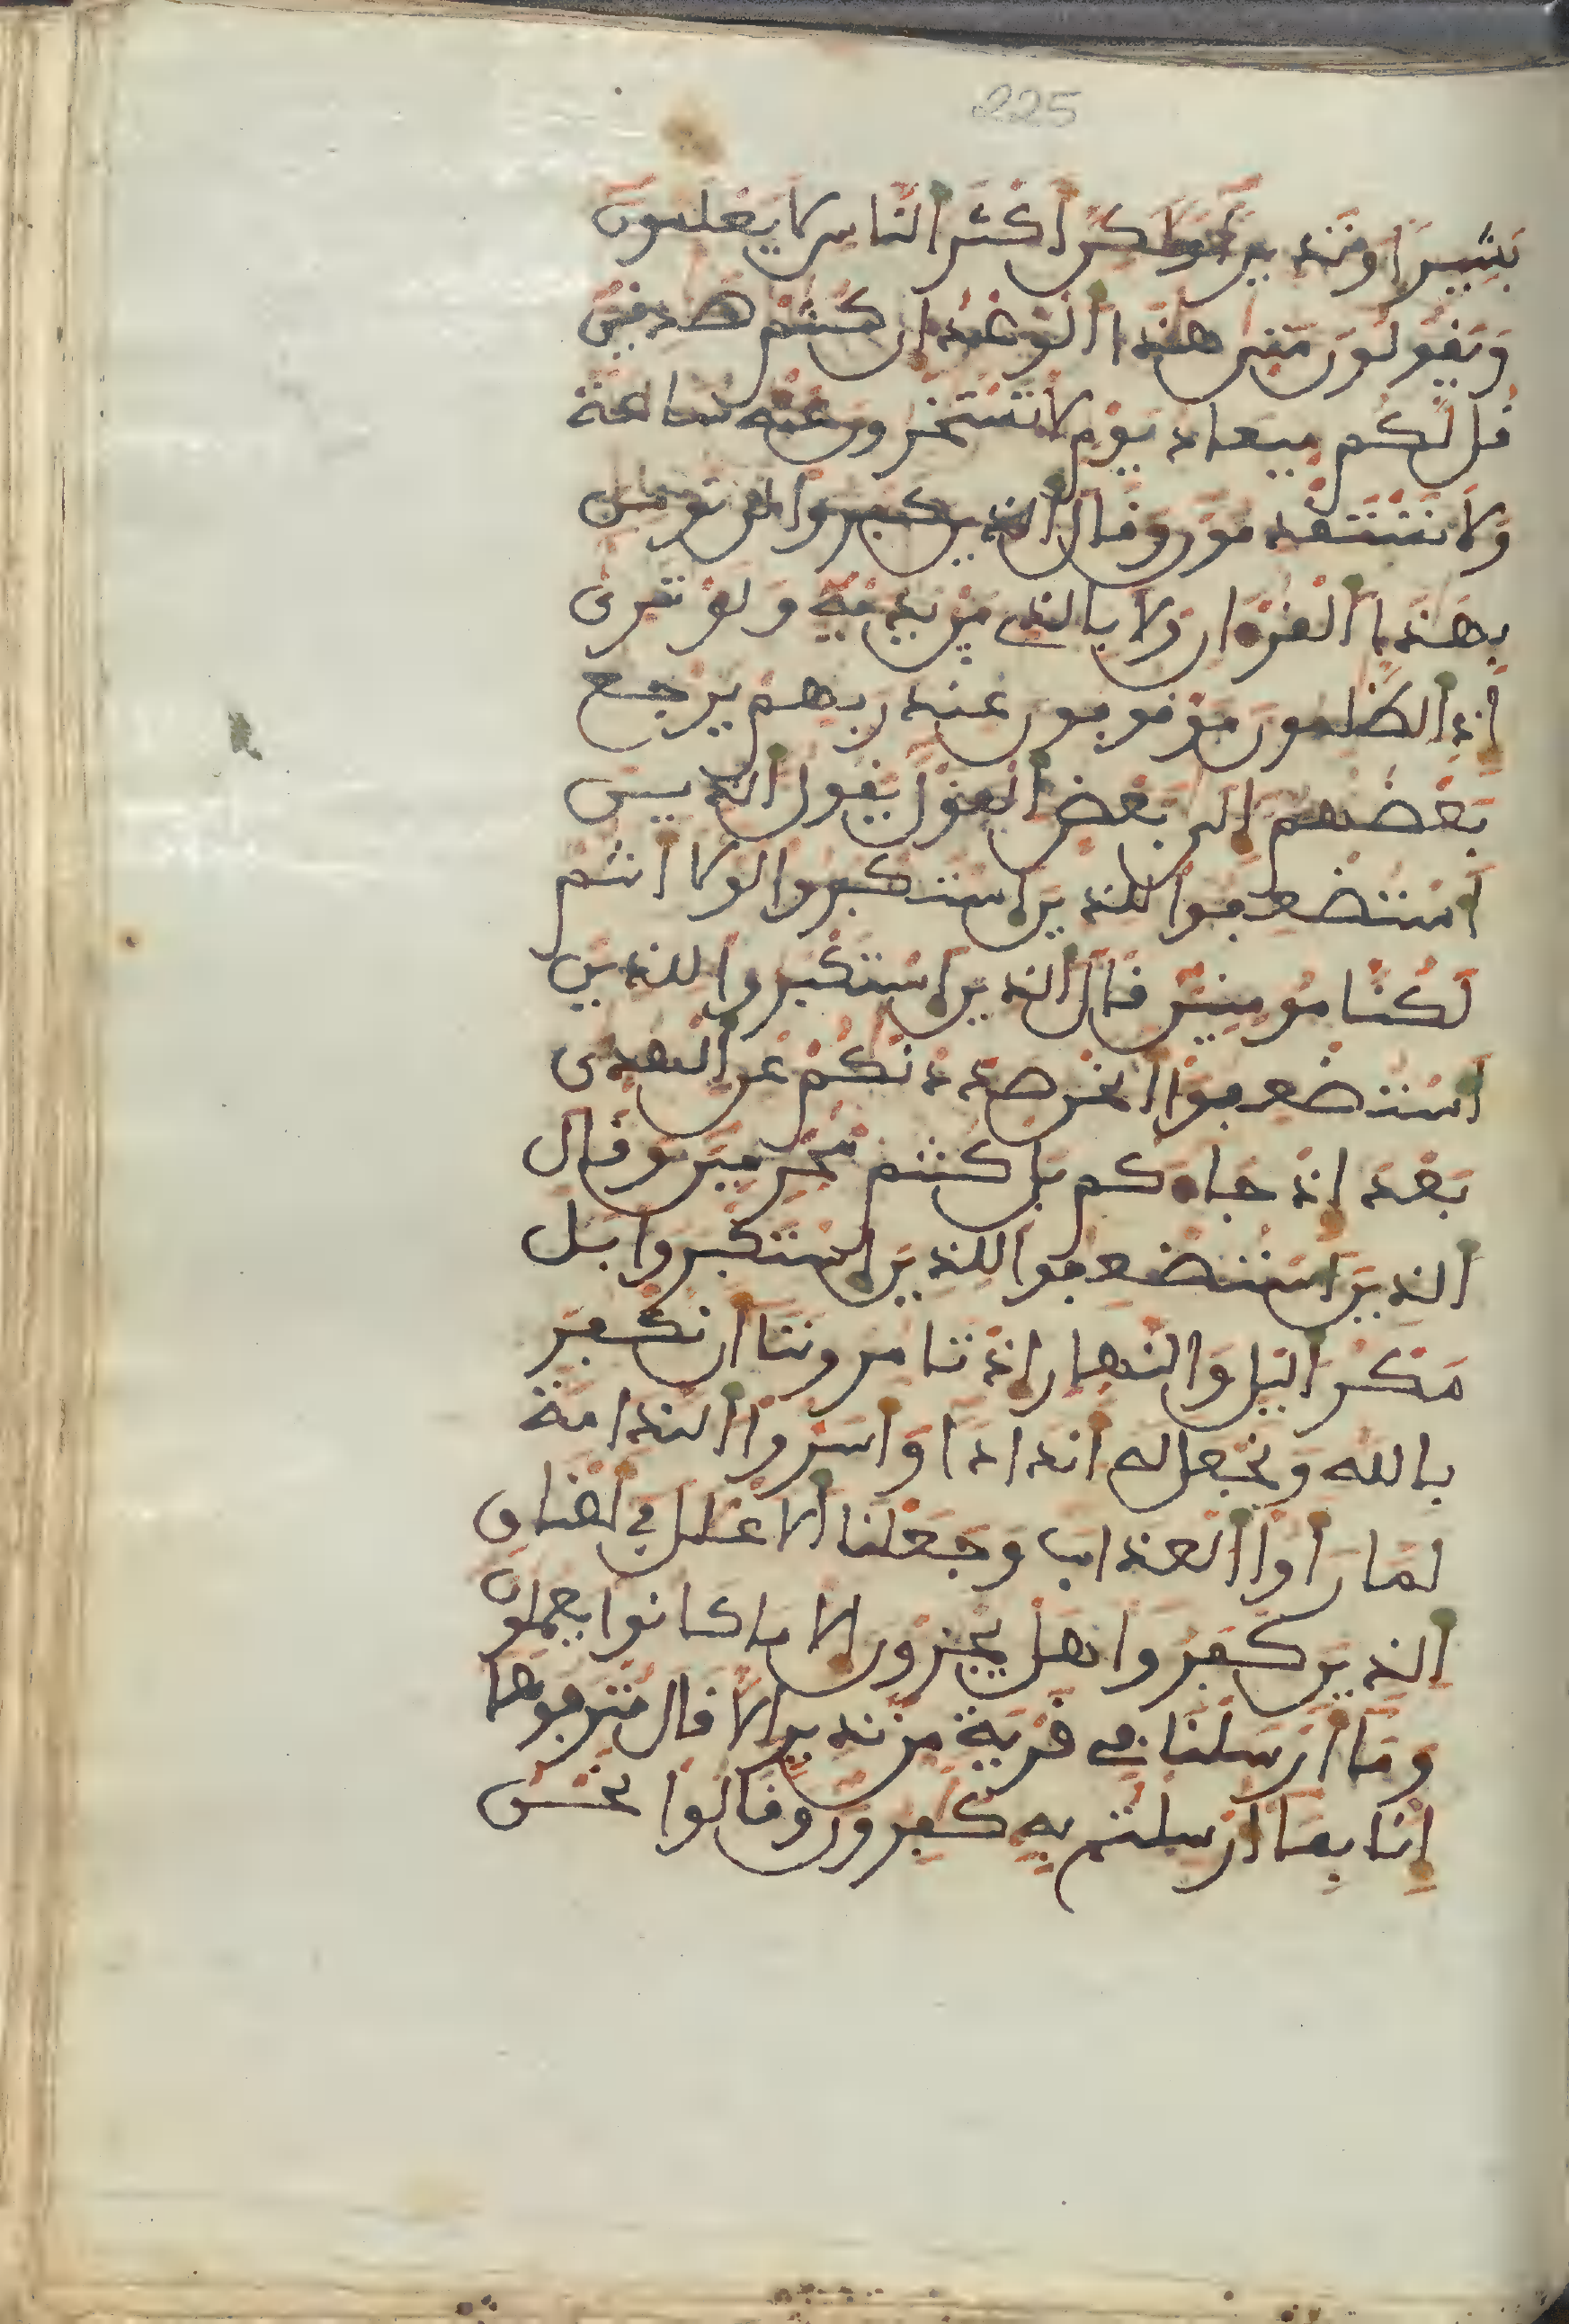 225
بشيرا ونذيرا ولكن اكثر الناس لا يعلمون
ويقولون متى هذا الوعد ان كنتم صدقين
قل لكم ميعاد يوم لا تستخرون عنه ساعة
ولا تستقدمون وقال الذين كفروا لن نومن
بهذا القران ولا بالذي بين يديه ولو ترى
اذ الظلمون موقوفون عند ربهم يرجع
بعضهم الى بعض القول يقول الذين
استضعفوا للذين استكبروا لولا انتم
لكنا مومنين قال الذين استكبروا للذين
استضعفوا انحن صددنكم عن الهدى
بعد اذ جاءكم بل كنتم مجرمين وقال
الذين استضعفوا للذين استكبروا بل
مكر اليل والنهار اذ تامروننا ان نكفر
بالله ونجعل له اندادا واسروا الندامة
لما راوا العذاب وجعلنا الاغلل في اعناق
الذين كفروا هل يجزون الا ما كانوا يعملون
وما ارسلنا في قرية من نذير الا قال مترفوها
انا بما ارسلتم به كفرون وقالوا نحن